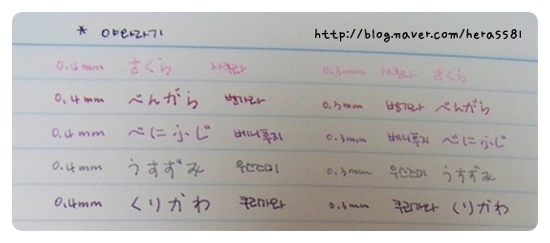 * 야와라기 http://blog.naver.com/hera5581
0.4mm さくら 사쿠라 0.3mm 사쿠라 さくら
0.4mm べんがら 벵가라 0.3mm 벵가라 べんがら
0.4mm べにふじ 베니후지 0.3mm 베니후지 べにふじ
0.4mm うすずみ 우스즈미 0.3mm 우스즈미 うすずみ
0.4mm くりかわ 쿠리가와 0.3mm 쿠리가와 くりかわ